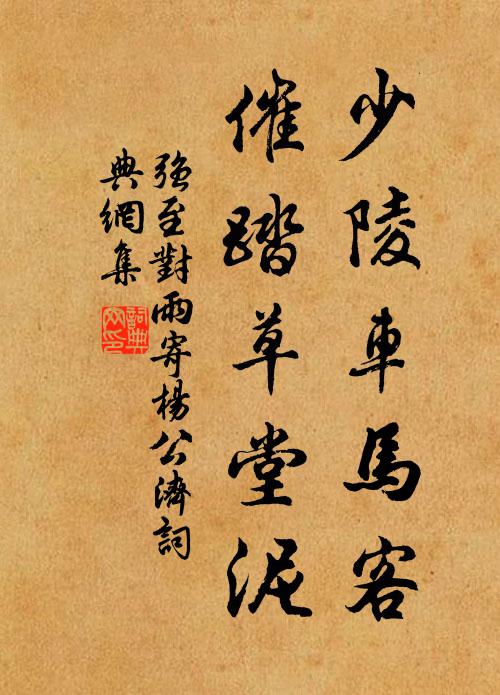 少陵車馬客
催踏草堂泥
強至對雨寄楊公濟詞
典網集
詞典
網印